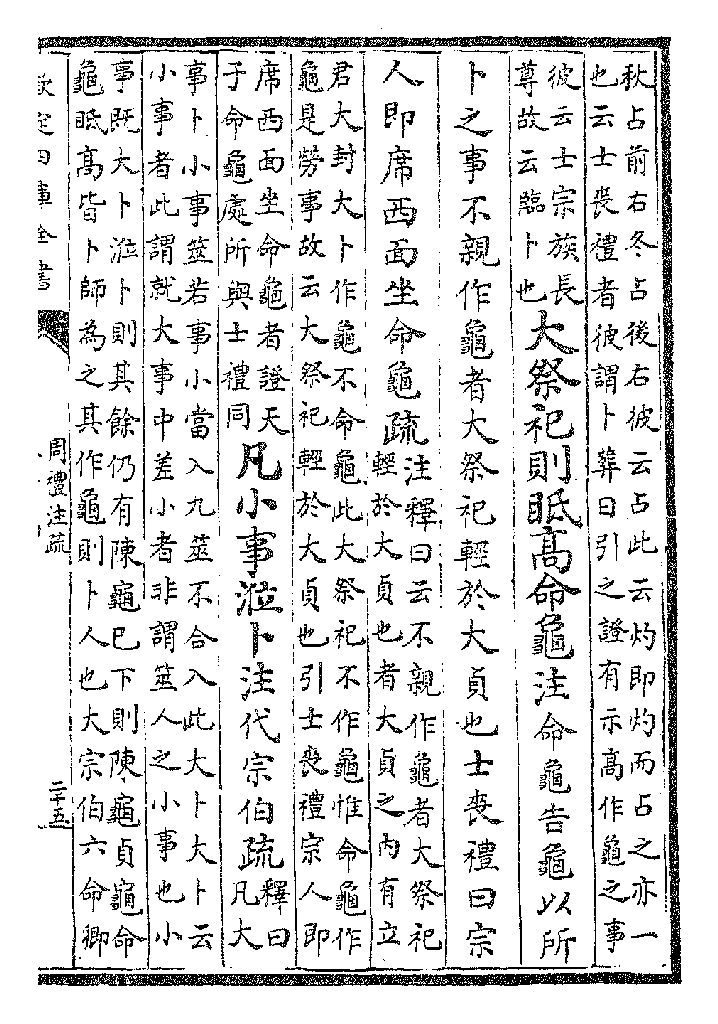 秋占前右冬占後右彼云占此云灼即灼而占之亦一
也云士喪禮者彼謂卜葬日引之證有示髙作龜之事
彼云士宗族長
尊故云臨卜也
大祭祀則眡髙命龜注命龜告龜以所
卜之事不親作龜者大祭祀輕於大貞也士喪禮曰宗
人即席西面坐命龜疏
注釋曰云不親作龜者大祭祀
輕於大貞也者大貞之内有立
君大封大卜作龜不命龜此大祭祀不作龜惟命龜作
龜是勞事故云大祭祀輕於大貞也引士喪禮宗人即
席西面坐命龜者證天
子命龜處所與士禮同
凡小事涖卜注代宗伯疏
釋曰
凡大
事卜小事筮若事小當入九筮不合入此大卜大卜云
小事者此謂就大事中差小者非謂筮人之小事也小
事既大卜涖卜則其餘仍有陳龜已下則陳龜貞龜命
龜眡髙皆卜師為之其作龜則卜人也大宗伯六命卿
欽定四庫全書
周禮注疏
二十五